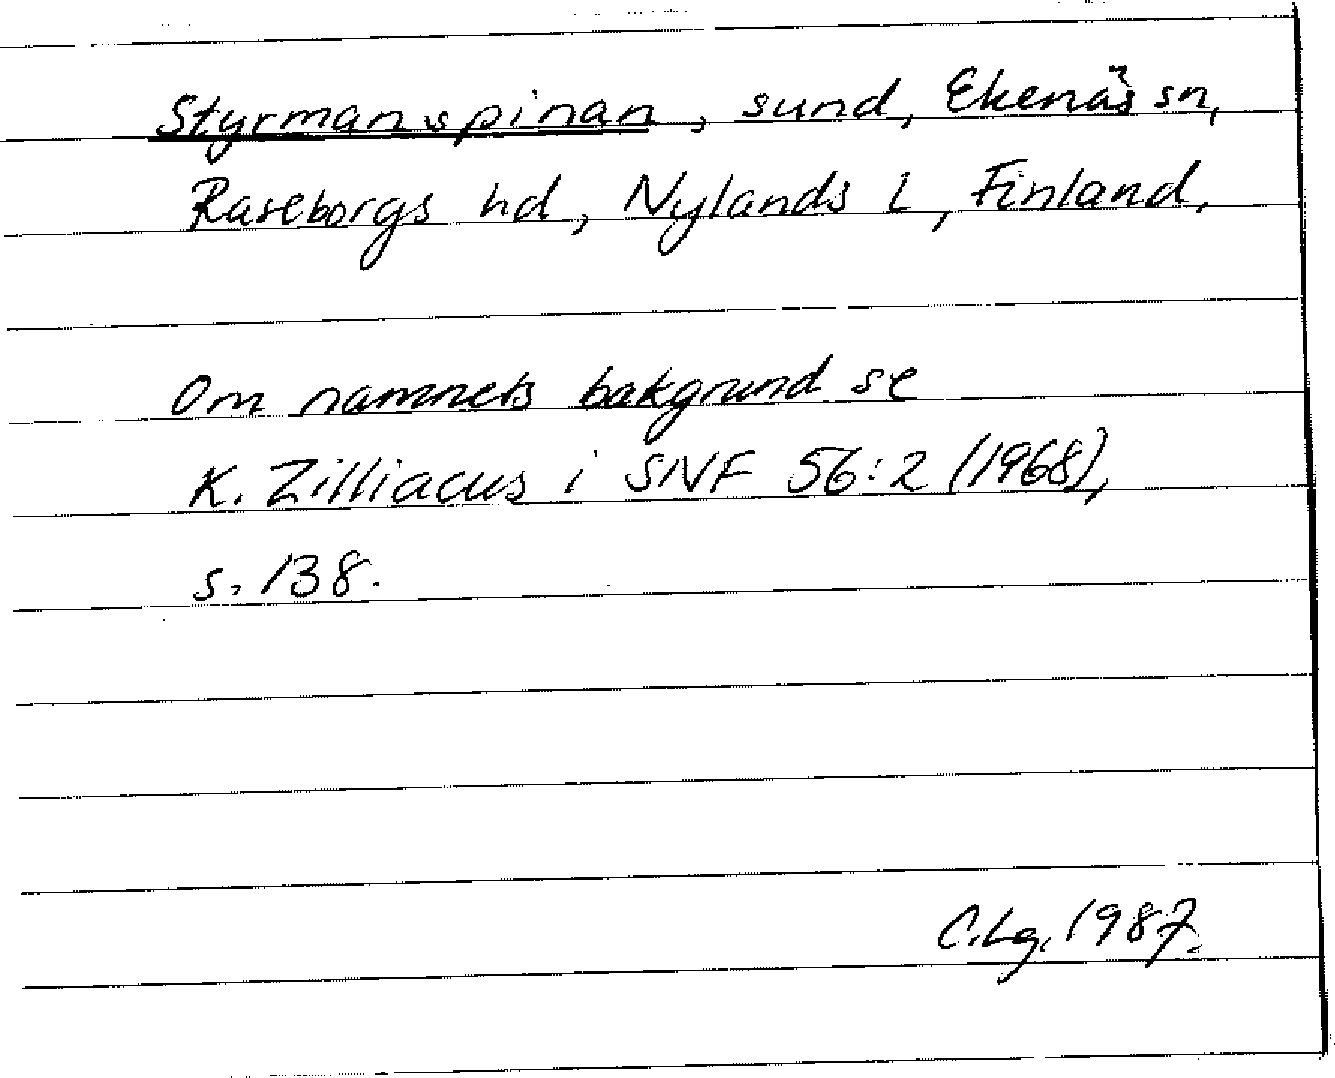 Styrmanspinan, sund, Ekenäs sn,
Raseborgs hd, Nylands l, Finland.
Om namnets bakgrund se
K. Zilliacus i SNF 56:2 (1968),
s. 138.
C.Lg. 1987.